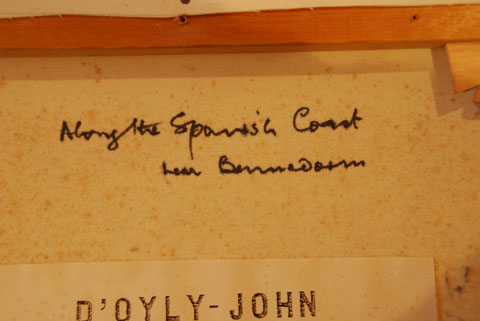 Along the Spanish Coast
near Bennedorm
D'OYLY-JOHN